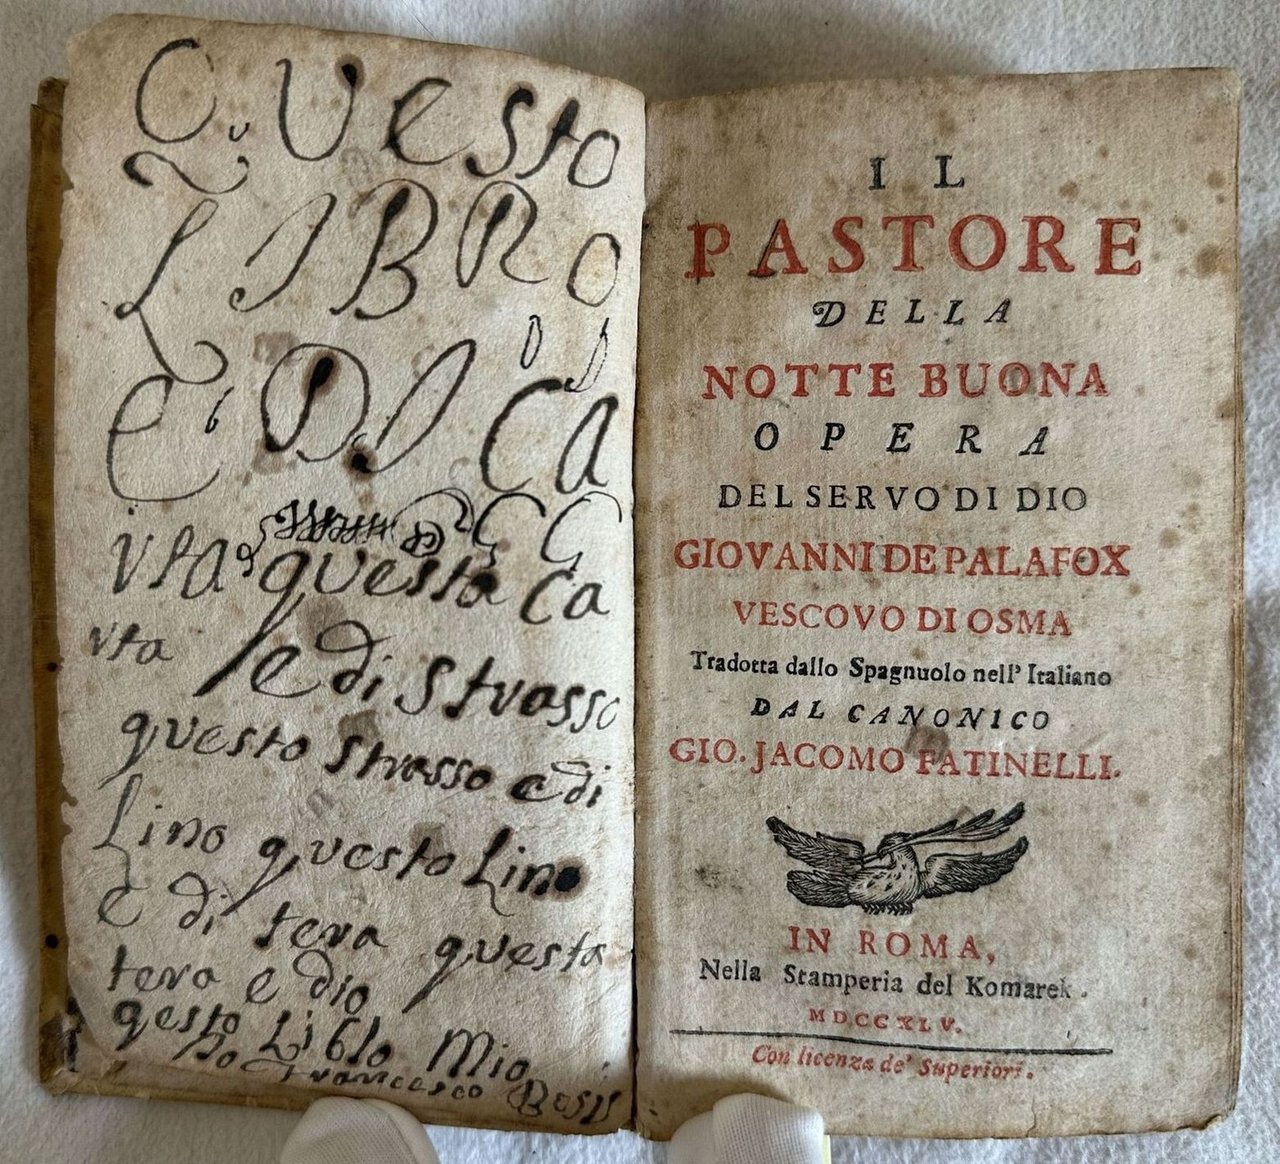 QVesto
LIBRO
E DI Ca
vta questa Ca
vta
e di Strasso
questo Strasso e di
Lino questo Lino
e di tera questa
tera e dio
qesto Liblo Mio
Francesco
IL
PASTORE
DELLA
NOTTE BUONA
OPERA
DEL SERVO DI DIO
GIOVANNI DE PALAFOX
VESCOVO DI OSMA
Tradotta dallo Spagnuolo nell' Italiano
DAL CANONICO
GIO. JACOMO FATINELLI.
IN ROMA,
Nella Stamperia del Komarek.
MDCCXLV.
Con licenza de' Superiori.